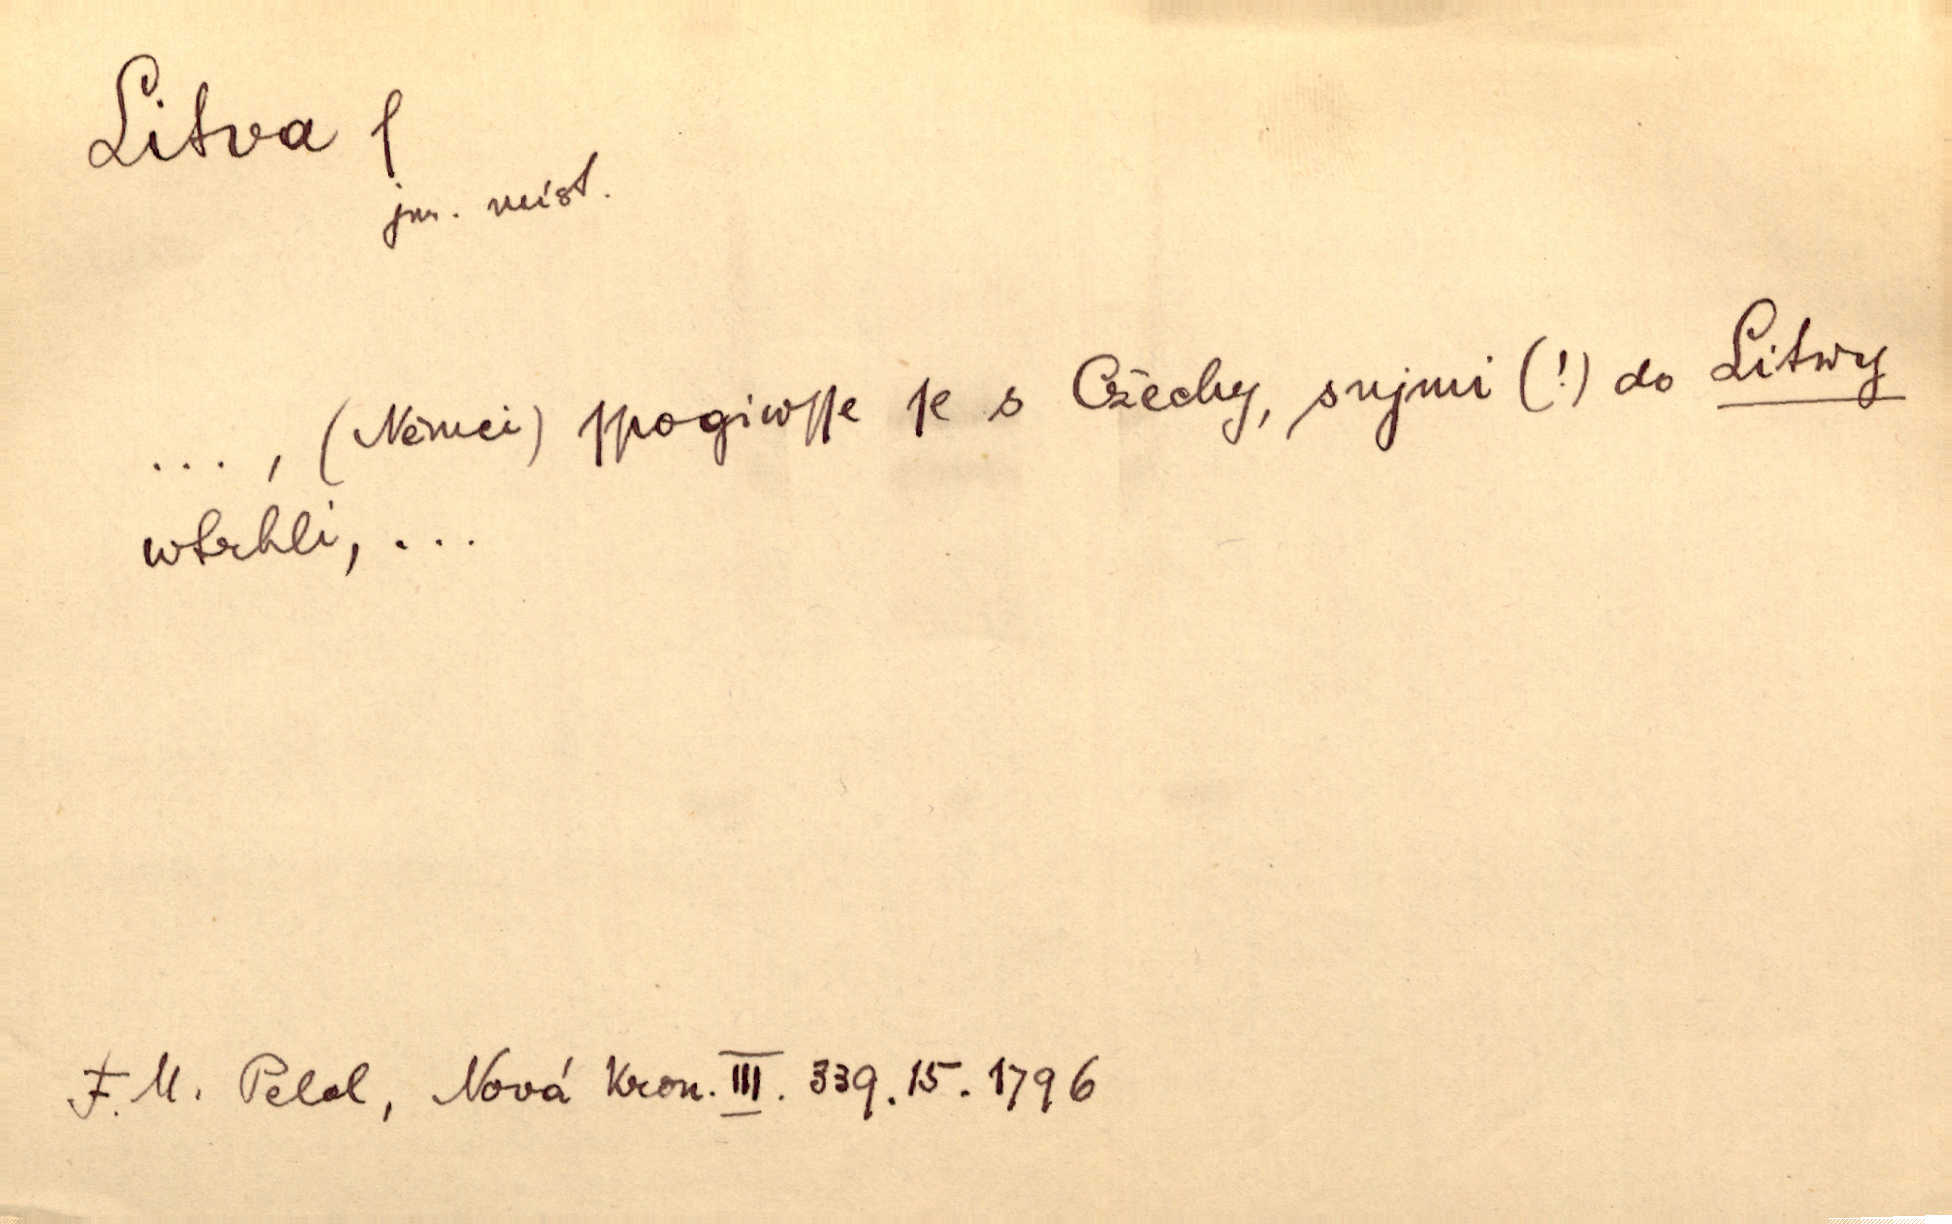 Litva f
jm. míst.
..., (Němci) ſpogiwſſe ſe s Cžechy, snjmi (!) do Litwy
wtrhli, ...
F. M. Pelcl, Nová Kron. III. 339. 15. 1796